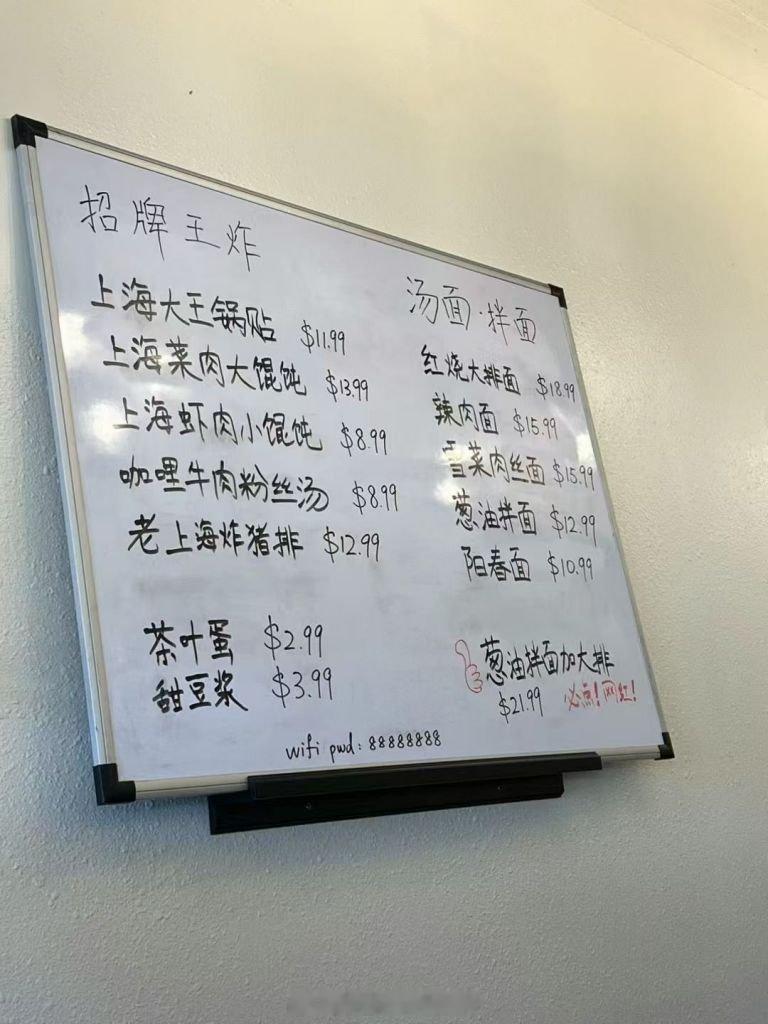 招牌王炸
上海大王锅贴 $11.99
上海菜肉大馄饨 $13.99
上海虾肉小馄饨 $8.99
咖哩牛肉粉丝汤 $8.99
老上海炸猪排 $12.99
茶叶蛋 $2.99
甜豆浆 $3.99
汤面·拌面
红烧大排面 $18.99
辣肉面 $15.99
雪菜肉丝面 $15.99
葱油拌面 $12.99
阳春面 $10.99
葱油拌面加大排
$21.99 必点!网红!
wifi pwd: 88888888